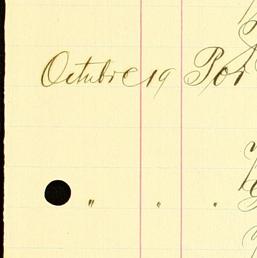 Octubre 19 Por
" " "